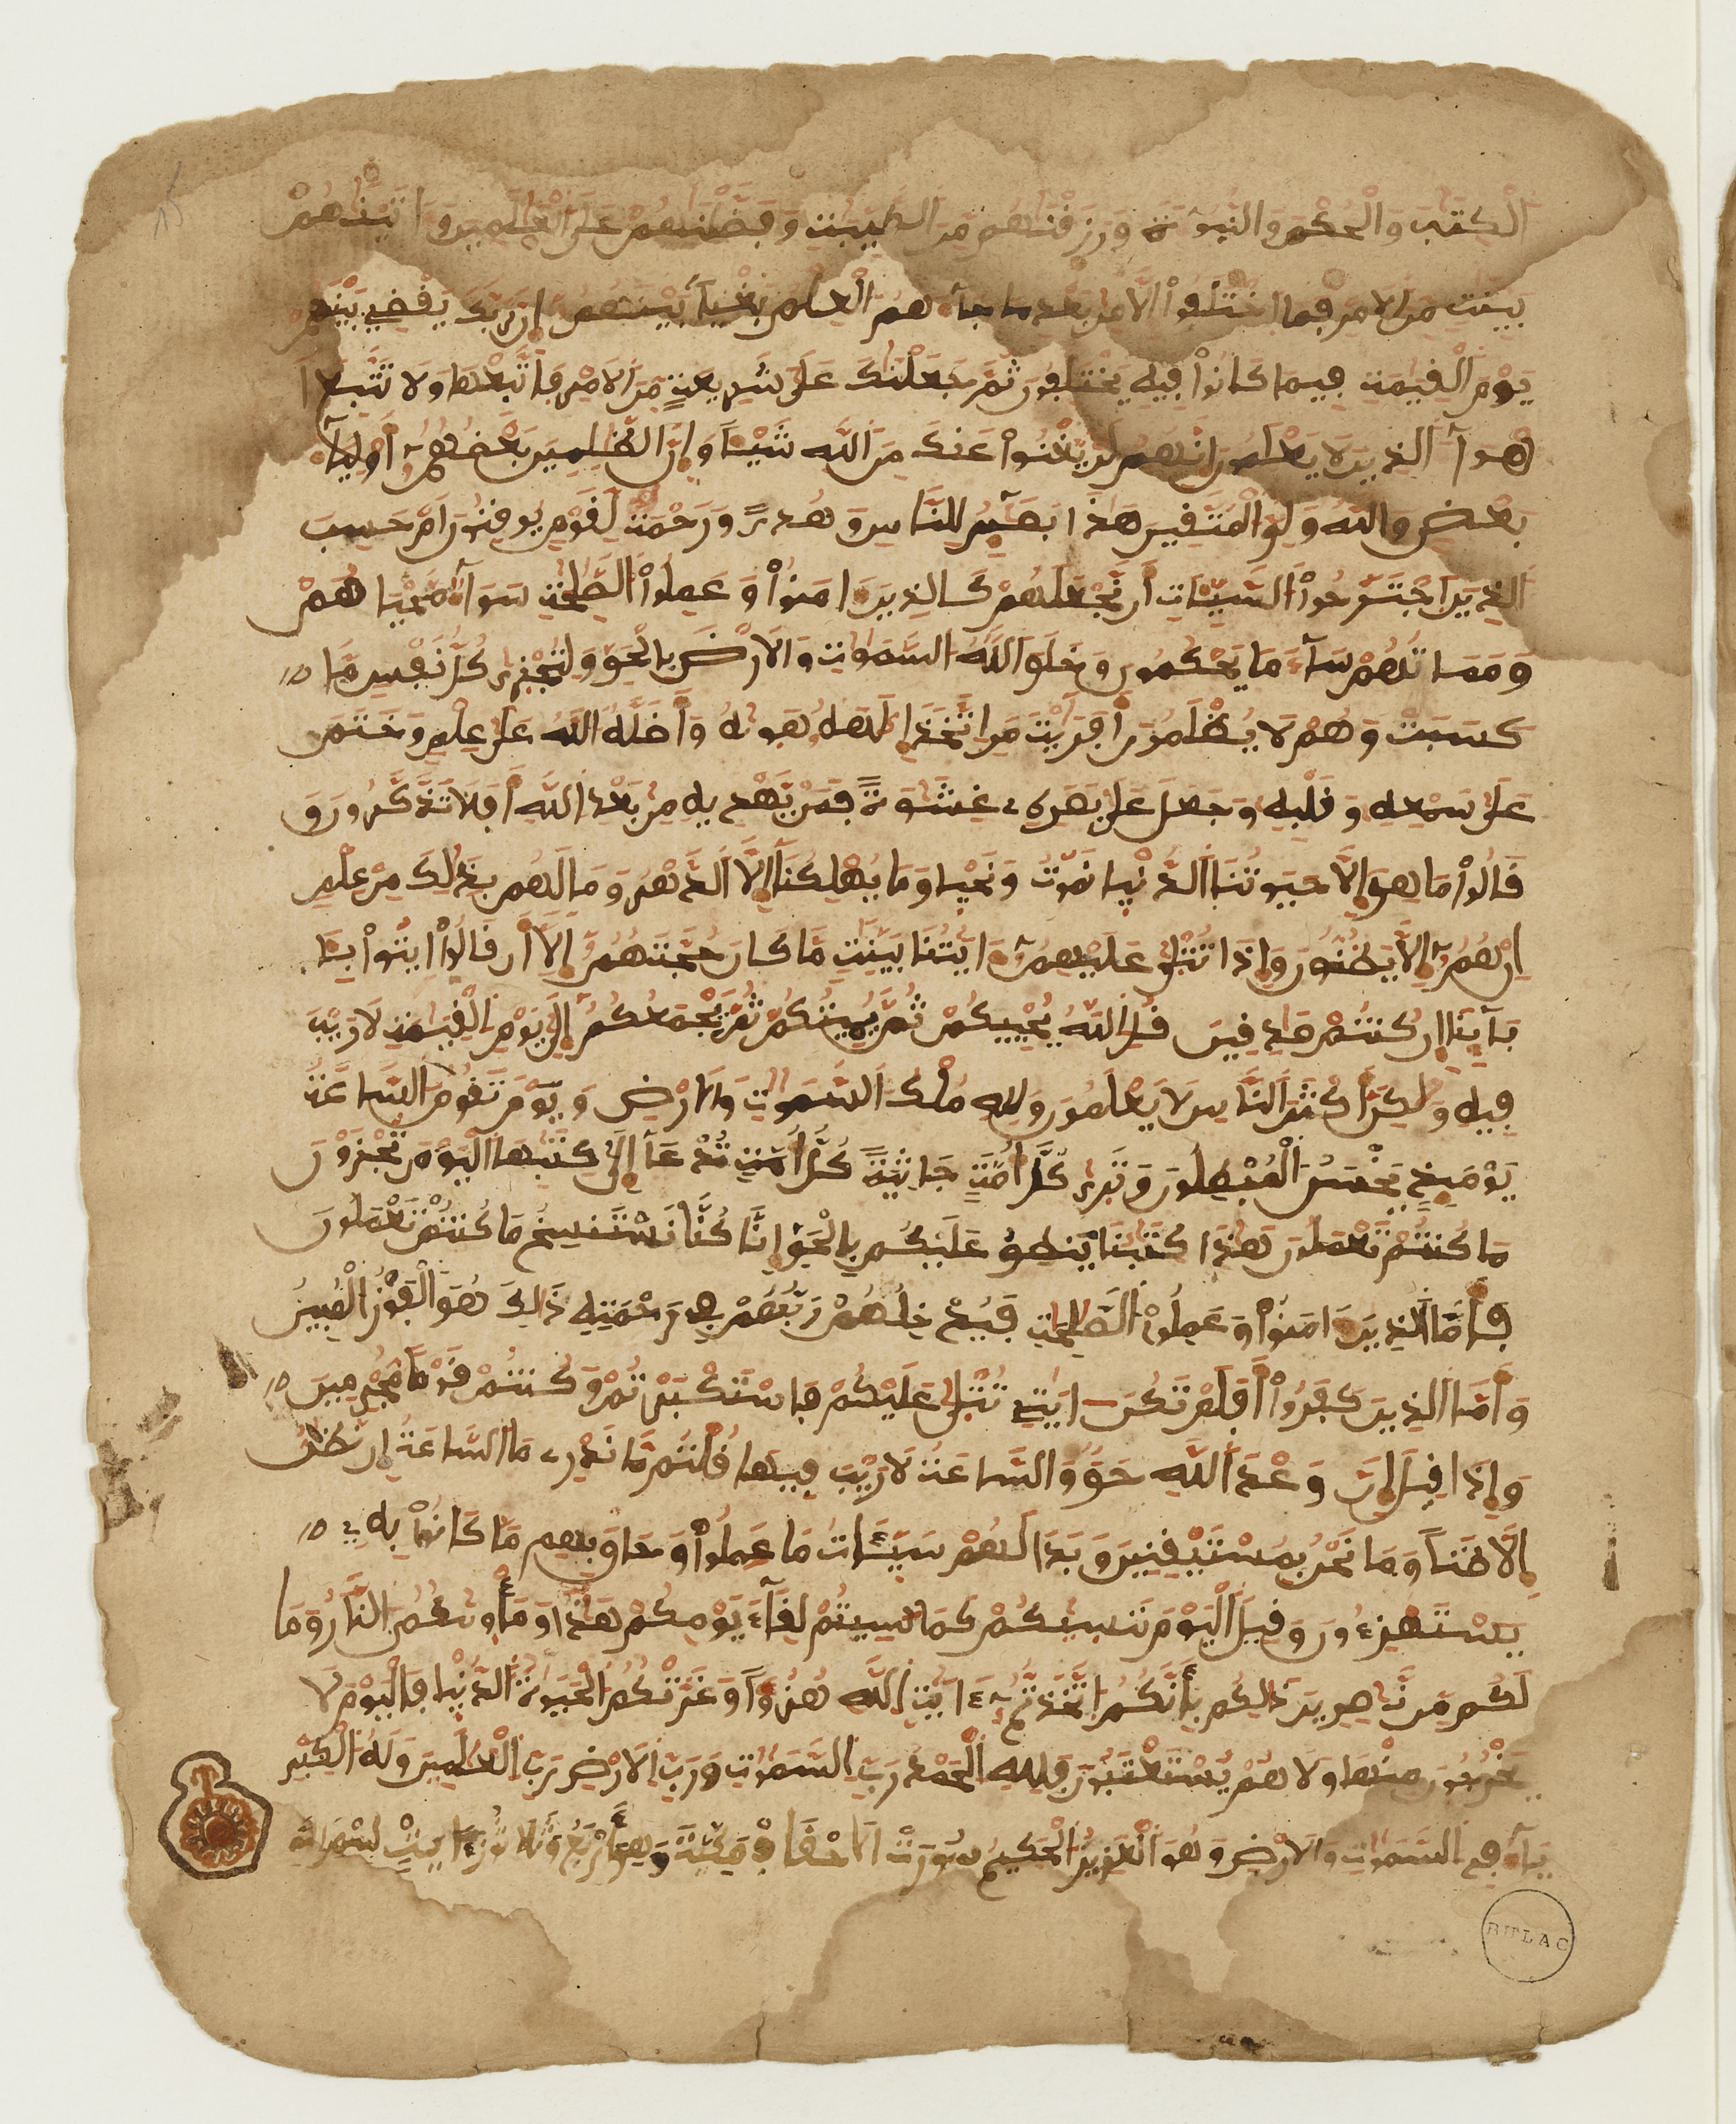 الكتب والحكم والنبوة ورزقنهم من الطيبت وفضلنهم على العلمين واتينهم
بينت من الامر فما اختلفوا الا من بعد ما جاهم العلم بغيا بينهم ان ربك يقضي بينهم
يوم القيمة فيما كانوا فيه يختلفون ثم جعلنك على شريعة من الامر فاتبعها ولا تتبع ا
هوا الذين لا يعلمون انهم لن يغنوا عنك من الله شيئا وان الظلمين بعضهم أوليا
بعض والله ولي المتقين هذا بصير للناس وهدى ورحمة لقوم يوقنون ام حسب
الذين اجترحوا السيات أن نجعلهم كالذين امنوا وعملوا الصلحت سوا محياهم
ومماتهم سا ما يحكمون وخلق الله السموت والارض بالحق ولتجزى كل نفس ما
كسبت وهم لا يظلمون أفريت من اتخذ الهه هويه وأضله الله على علم وختم
على سمعه وقلبه وجعل على بصره غشوة فمن يهديه من بعد الله أفلا تذكرون و
قالوا ما هي الا حيوتنا الدنيا نموت ونحيا وما يهلكنا الا الدهر وما لهم بذلك من علم
ان هم الا يظنون واذا تتلى عليهم ايتنا بينت ما كان حجتهم الا أن قالوا ايتوا بـ
باينا ان كنتم صدقين قل الله يحييكم ثم يميتكم ثم يجمعكم الى يوم القيمة لا ريب
فيه ولكن أكثر الناس لا يعلمون ولله ملك السموت والارض ويوم تقوم الساعة
يومئذ يخسر المبطلون وترى كل أمة جاثية كل أمة تدعا الى كتبها اليوم تجزون
ما كنتم تعملون هذا كتبنا ينطق عليكم بالحق انا كنا نستنسخ ما كنتم تعملون
فأما الذين امنوا وعملوا الصلحت فيدخلهم ربهم في رحمته ذلك هو الفوز المبين
وأما الذين كفروا أفلم تكن ايتي تتلى عليكم فاستكبرتم وكنتم قوما مجرمين
واذا قيل ان وعد الله حق والساعة لا ريب فيها قلتم ما ندري ما الساعة ان نظن
الا ظنا وما نحن بمستيقنين وبدا لهم سيئات ما عملوا وحاق بهم ما كانوا به
يستهزءون وقيل اليوم ننسيكم كما نسيتم لقاء يومكم هذا ومأويكم النار وما
لكم من نصرين ذلكم بأنكم اتخذتم ءايت الله هزوا وغرتكم الحيوة الدنيا فاليوم لا
يخرجون منها ولا هم يستعتبون فلله الحمد رب السموت ورب الارض رب العلمين وله الكبر
يا في السموت والارض وهو العزيز الحكيم سورت الاحقاف مكية وهي أربع وثلاثون ءاية بسم الله
BULAC